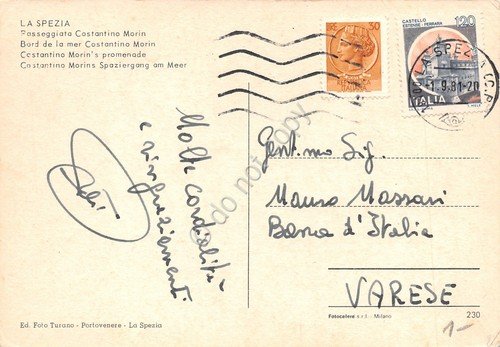 LA SPEZIA
Passeggiata Costantino Morin
Bord de la mer Costantino Morin
Costantino Morin's promenade
Costantino Morins Spaziergang am Meer
30
CASTELLO
ESTENSE - FERRARA
120
ITALIA
LA SPEZIA C.P.
1.9.81-20
do not copy
Molte cordialità
e ringraziamenti
Gent.mo Sig.
Mauro Massari
Banca d'Italia
VARESE
Ed. Foto Turano - Portovenere - La Spezia
Fotocelere s.r.l. Milano
230
1-